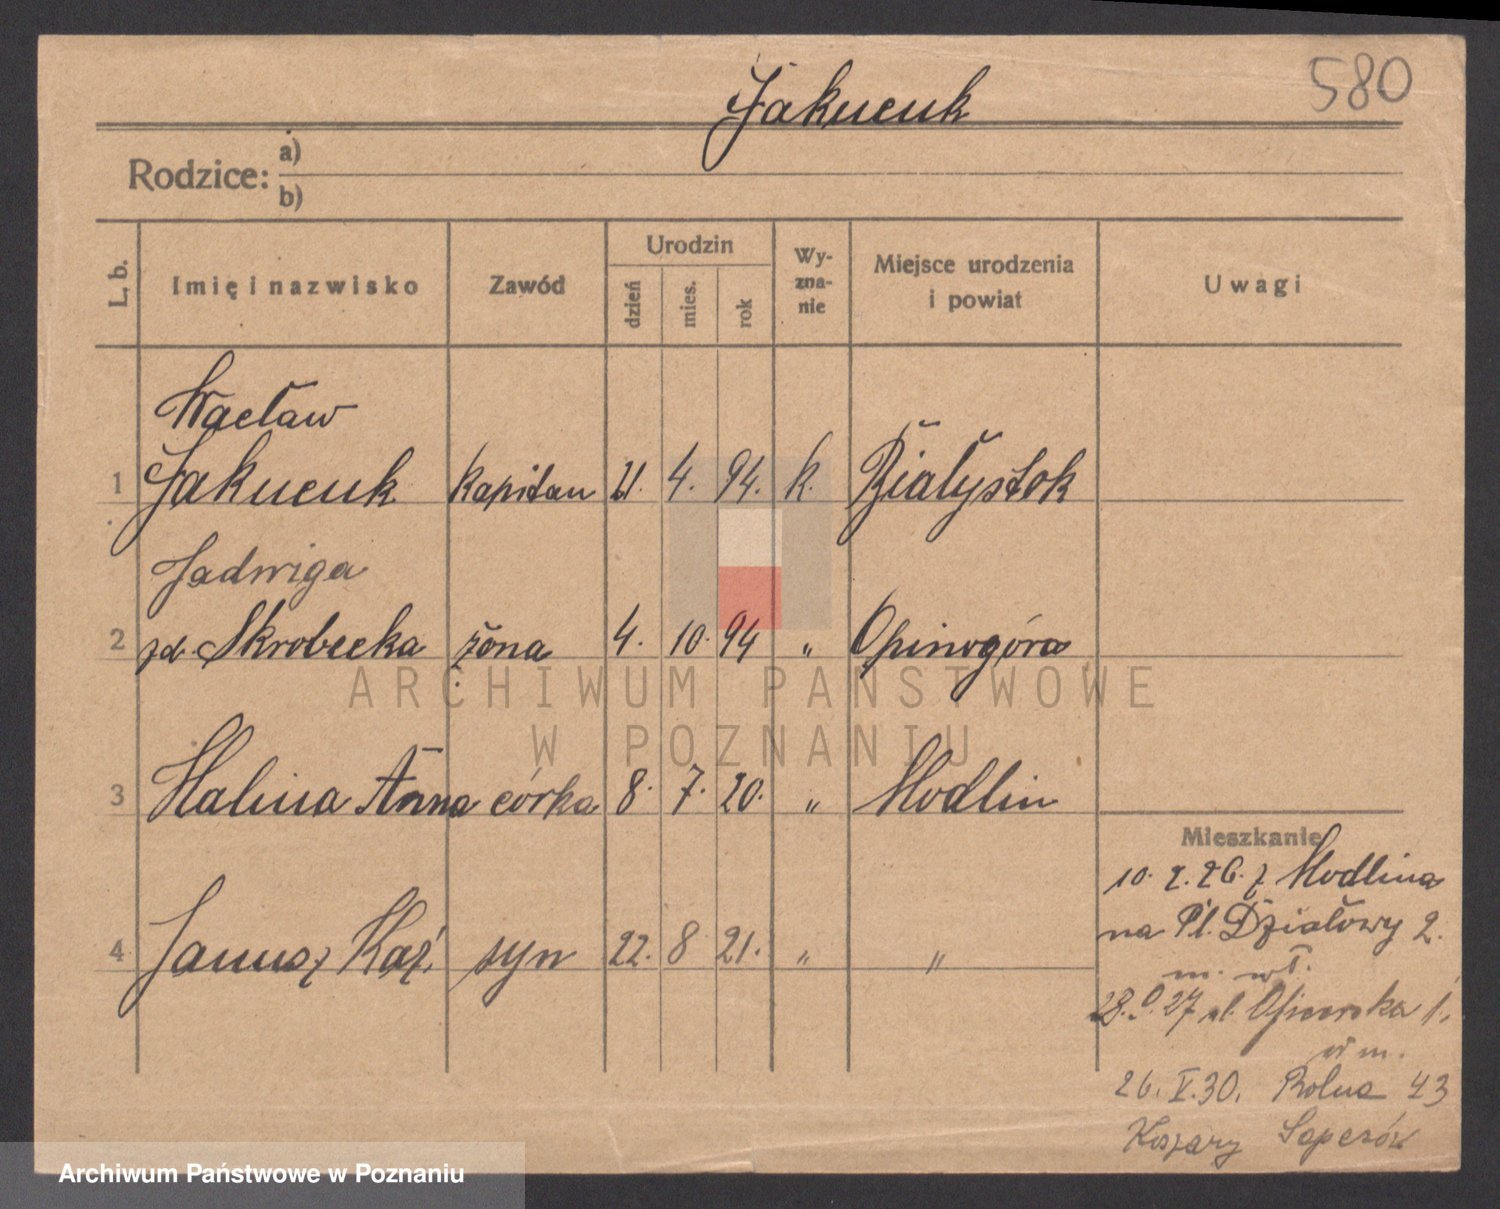 580
Jakucuk
Rodzice: a)
b)
L. b. Imię i nazwisko Zawód Urodzin dzień mies. rok Wy-zna-nie Miejsce urodzenia i powiat Uwagi
Wacław
1 Jakucuk kapitan 21. 4. 94. k. Białystok
Jadwiga
2 zd. Skrobecka żona 4. 10. 94 " Opinogóra
3 Halina Anna córka 8. 7. 20. " Modlin
Mieszkanie
10. 2. 26. z Modlina
na Pl. Działowy 2.
4 Janusz Kaz. syn 22. 8 21. " "
m. wł.
27 ul. Oficerska 1.
w m.
26. V. 30. Rolna 43
Koszary Saperów
ARCHIWUM PAŃSTWOWE
W POZNANIU
Archiwum Państwowe w Poznaniu